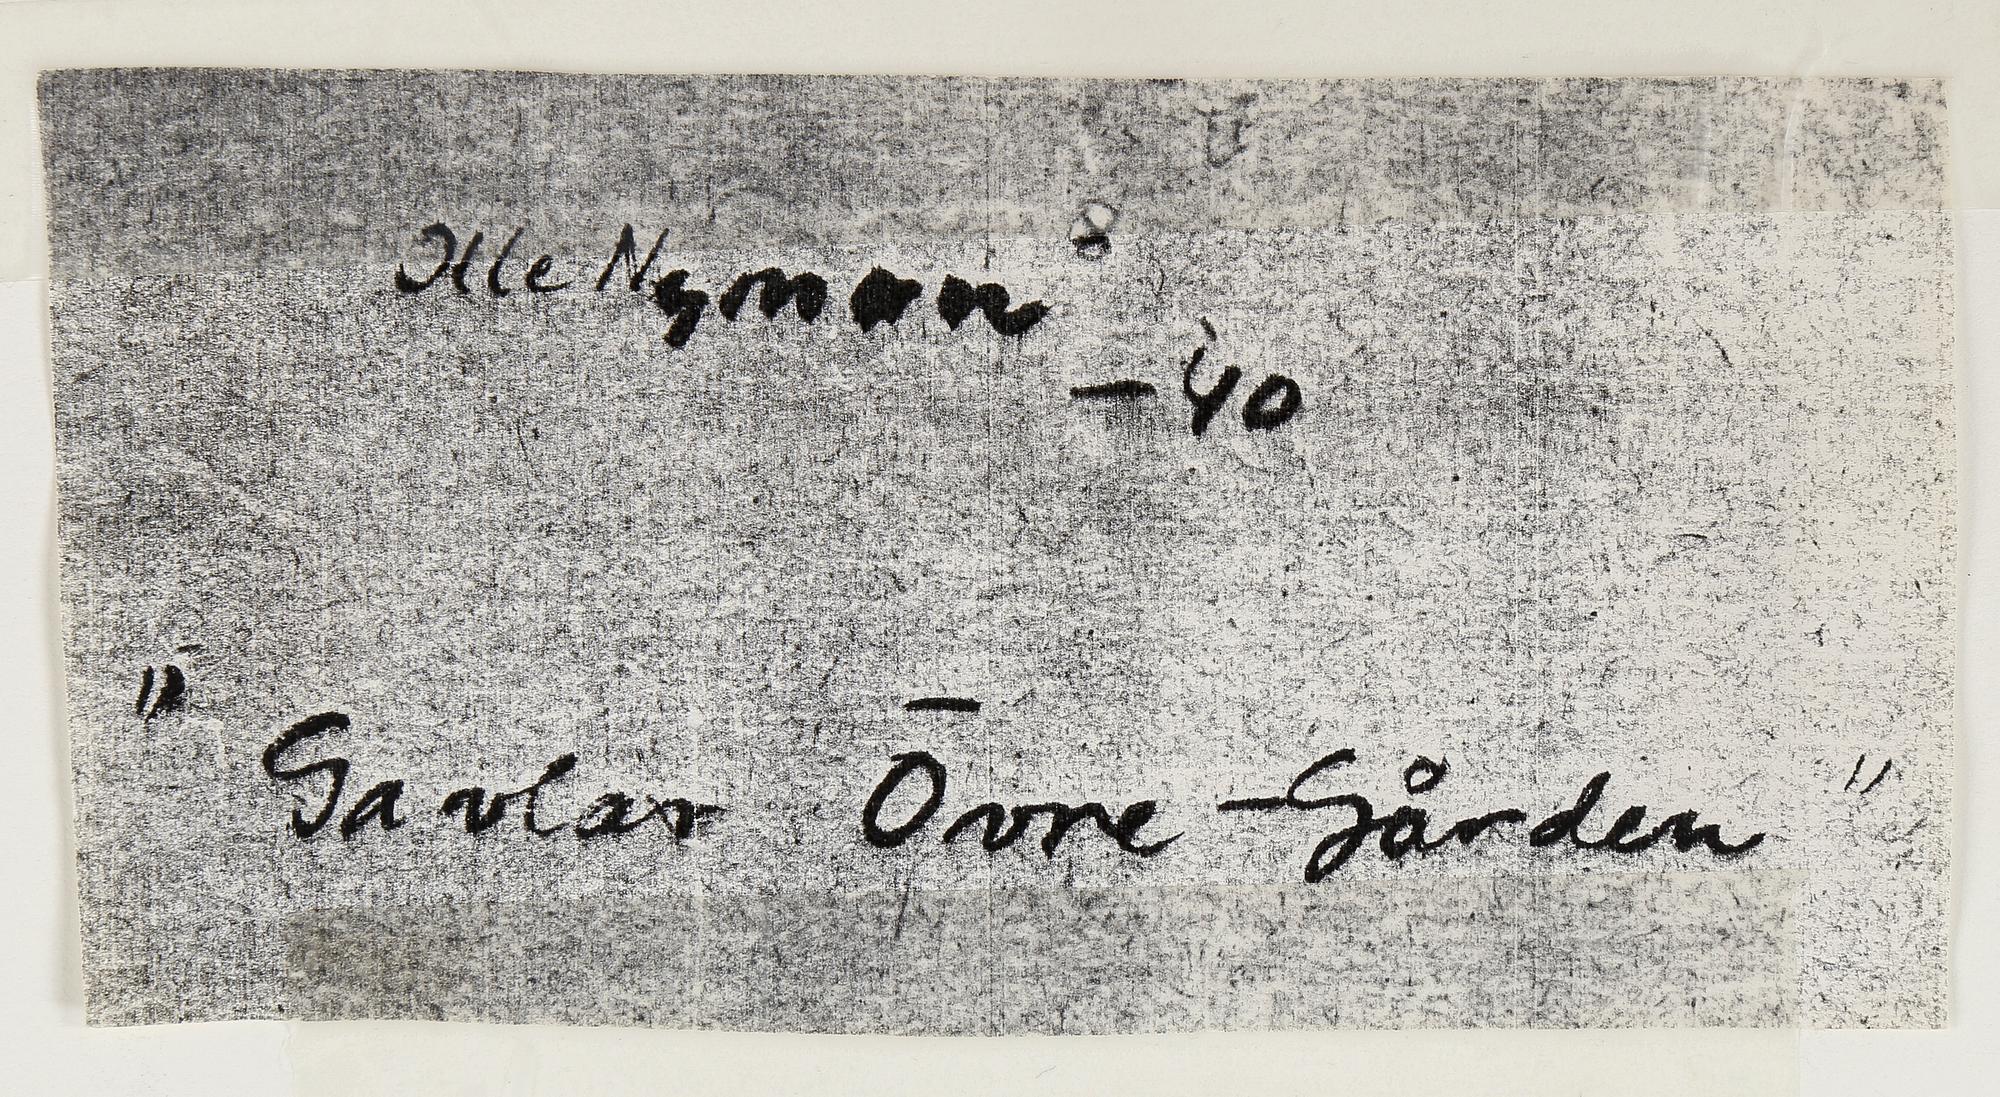 Olle Nyman
-40
" Gavlar Övre-Gården "